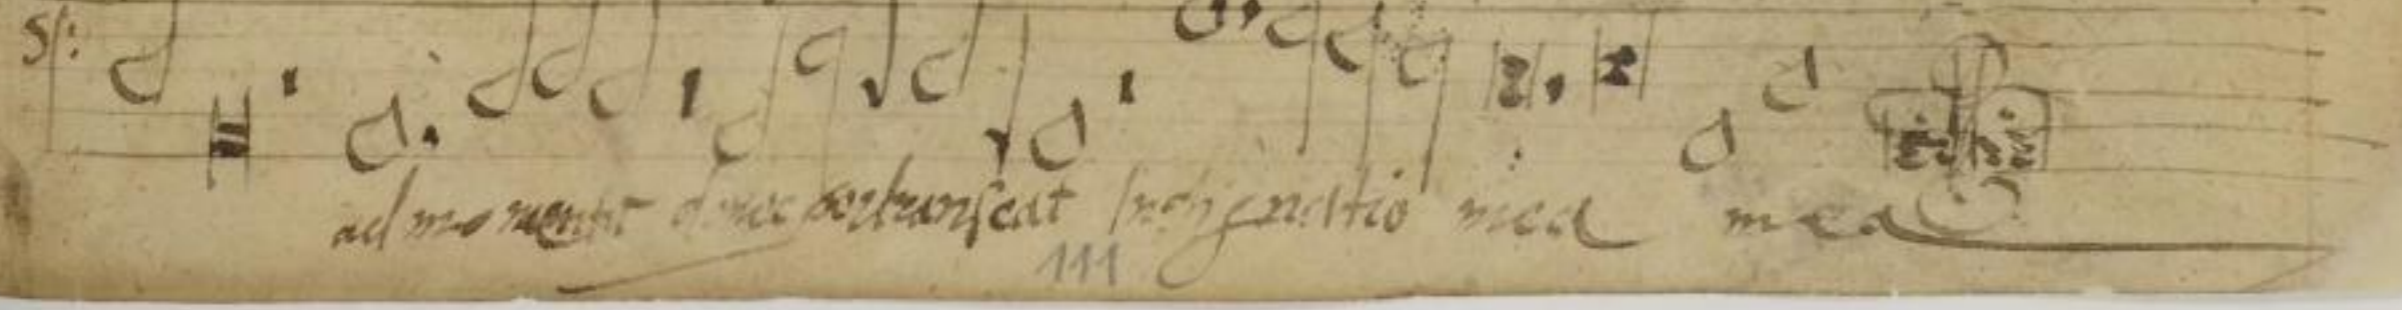 S:
ad momentu donec pertranseat Indignatio mea mea
111